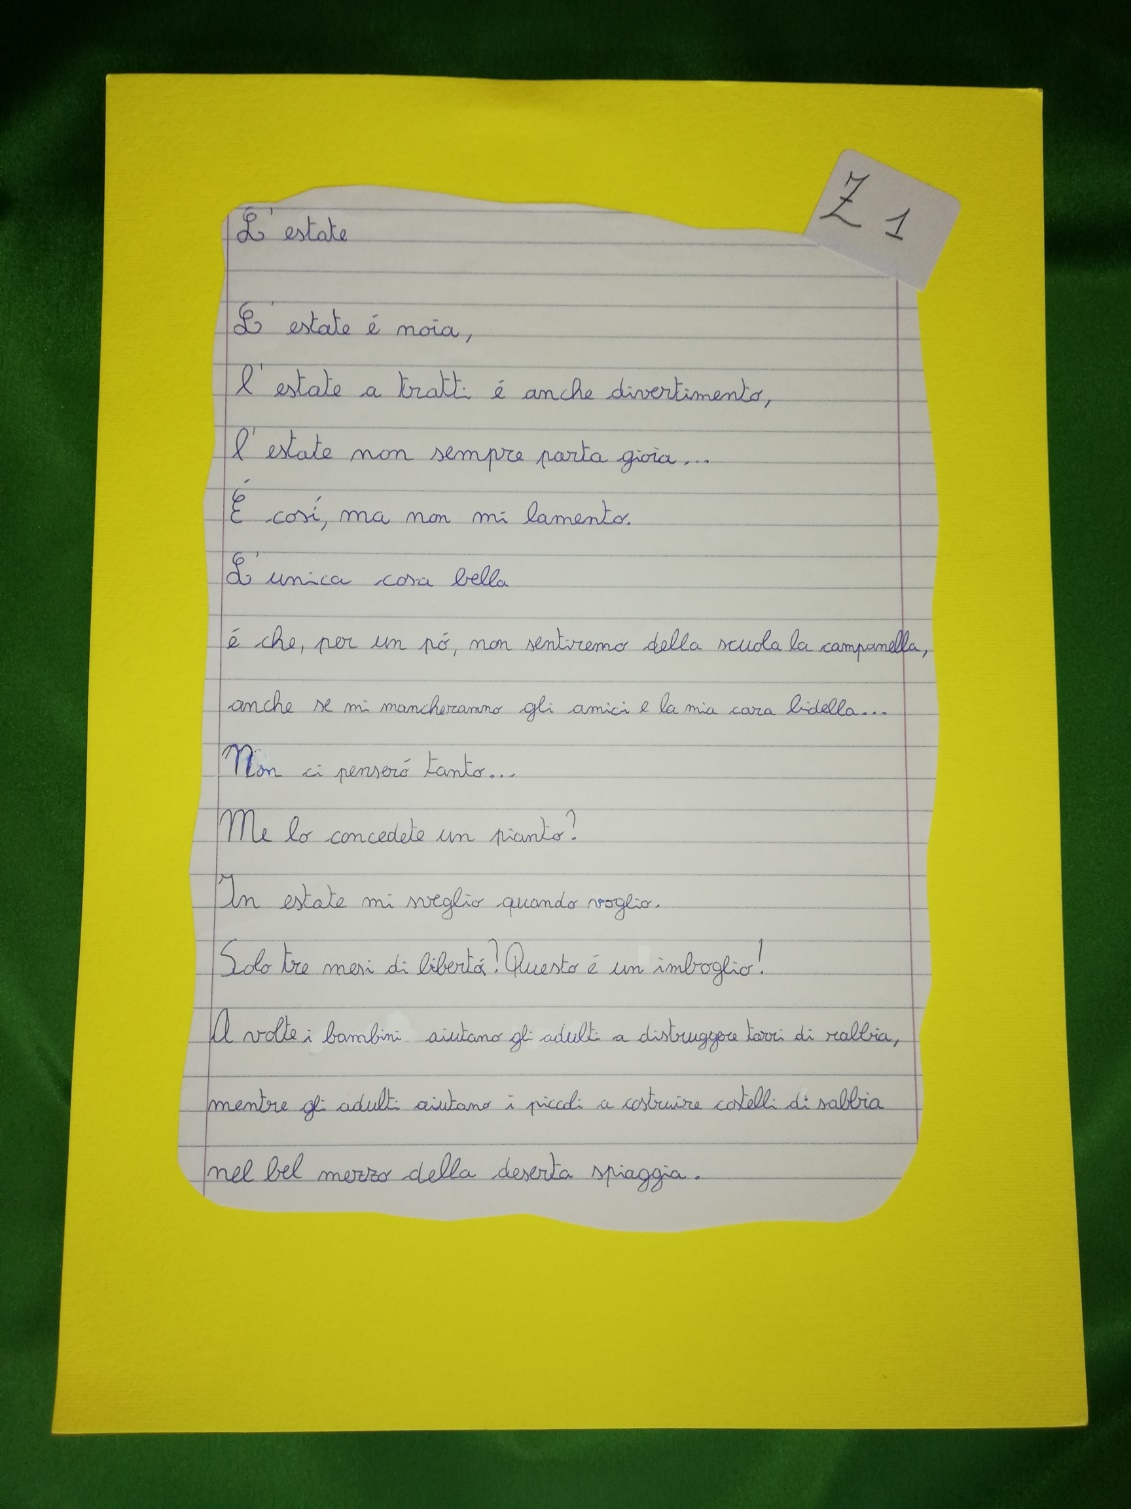 Z 1
L'estate
L'estate é noia,
l'estate a tratti é anche divertimento,
l'estate non sempre porta gioia...
É cosí, ma non mi lamento.
L'unica cosa bella
é che, per un pó, non sentiremo della scuola la campanella,
anche se mi mancheranno gli amici e la mia cara bidella...
Non ci penseró tanto...
Me lo concedete un pianto?
In estate mi sveglio quando voglio.
Solo tre mesi di libertá? Questo é un imboglio!
A volte i bambini aiutano gli adulti a distruggere torri di rabbia,
mentre gli adulti aiutano i piccoli a costruire castelli di sabbia
nel bel mezzo della deserta spiaggia.